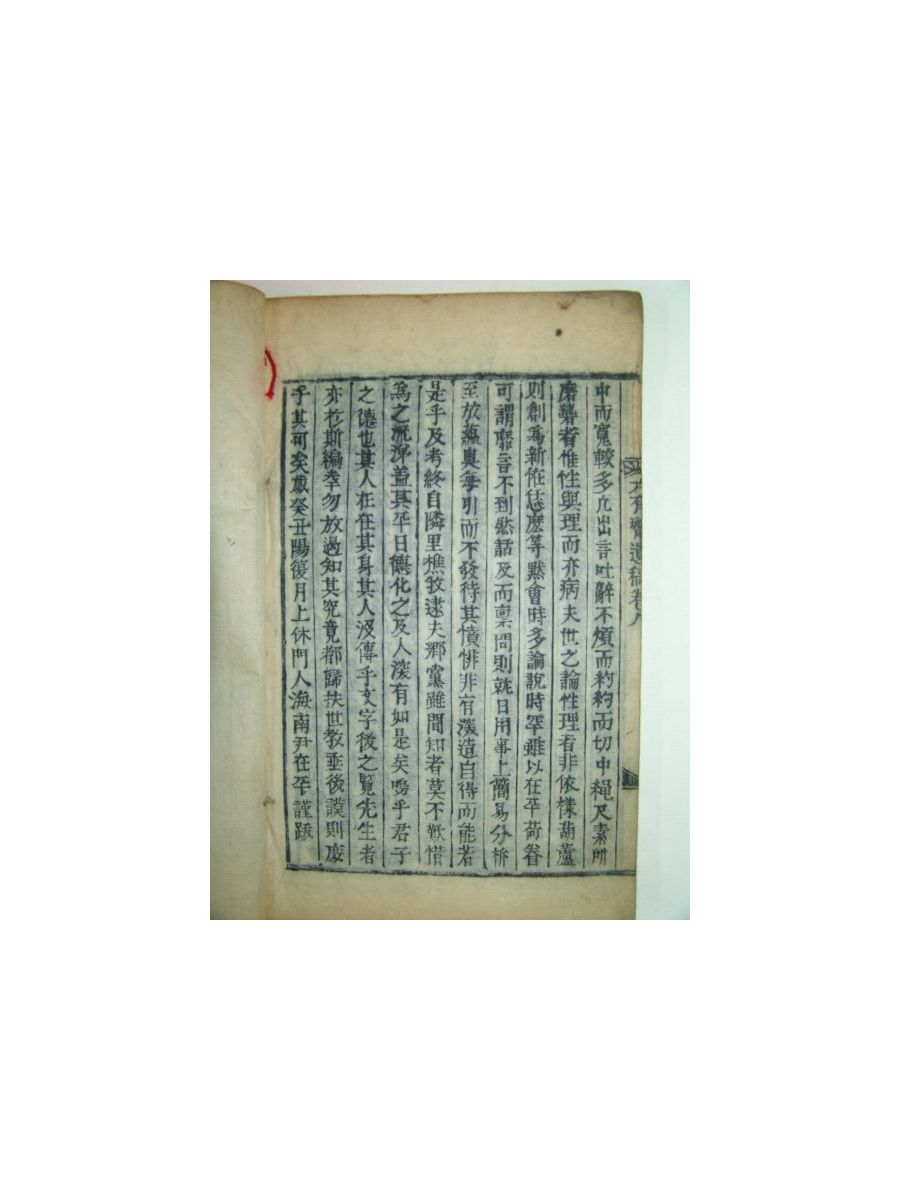 大有齋遺稿卷八
中而寬較多凡出言吐辭不煩而約約而切中繩尺素所
磨礱者惟性與理而亦病夫世之論性理者非依樣葫蘆
則創爲新俇恁麽等黙會時多論說時罕雖以在平荷眷
可謂靡言不到然話及而禀問則就日用事上簡易分柝
至放蘊奧每引而不發待其憤悱非有深造自得而能若
是乎及考終自隣里樵牧逮夫鄉黨雖聞知者莫不歎惜
爲之流涕盖其平日德化之及人深有如是矣嗚乎君子
之德也其人在在其身其人沒傳乎文字後之覽先生者
亦於斯編幸勿放過知其究竟都歸扶世教垂後謨則庶
乎其可矣歲癸丑陽復月上休門人海南尹在平謹跋